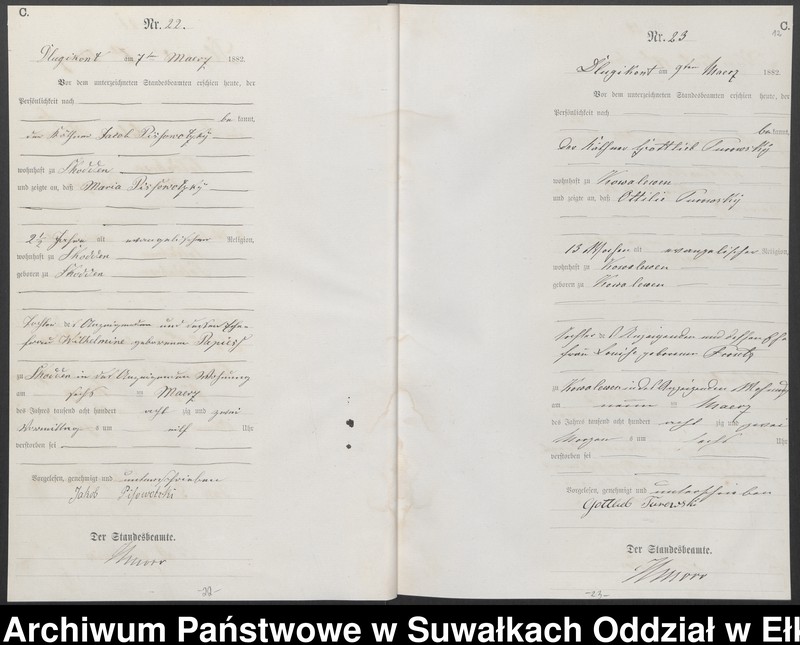 C.
Nr. 22.
Dlugikont am 7ten Maerz 1882.
Vor dem unterzeichneten Standesbeamten erschien heute, der
Persönlichkeit nach
be kannt,
der Käthner Jacob
wohnhaft zu Skodden
und zeigte an, daß Maria
2½ Jahre alt evangelischer Religion,
wohnhaft zu Skodden
geboren zu Skodden
Tochter des Anzeigenden und dessen Ehe-
frau Wilhelmine geborenen
zu Skodden in des Anzeigenden Wohnung
am sechs ten Maerz
des Jahres tausend acht hundert acht zig und zwei
Vormittag s um Uhr
verstorben sei
Vorgelesen, genehmigt und unterschrieben
Jakob
Der Standesbeamte.
-22-
C.
12
Nr. 23
Dlugikont am 9ten Maerz 1882
Vor dem unterzeichneten Standesbeamten erschien heute, der
Persönlichkeit nach
be kannt,
der Käthner Gottlieb
wohnhaft zu Kowalewen
und zeigte an, daß Ottilie
13 Wochen alt evangelischer Religion,
wohnhaft zu Kowalewen
geboren zu Kowalewen
Tochter des Anzeigenden und dessen Ehe
frau Louise geborenen
zu Kowalewen in des Anzeigenden Wohnung
am neun ten Maerz
des Jahres tausend acht hundert acht zig und zwei
Morgen s um Uhr
verstorben sei
Vorgelesen, genehmigt und unterschrieben
Gottlieb Turowski
Der Standesbeamte.
-23-
Archiwum Państwowe w Suwałkach Oddział w Ełk